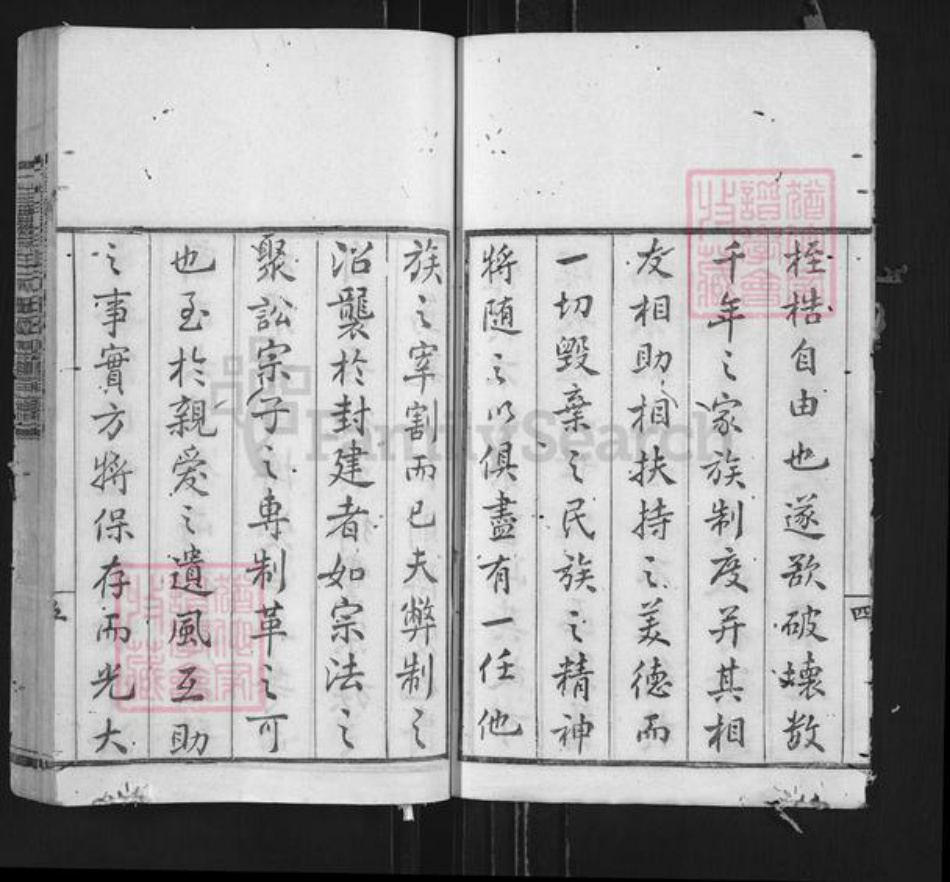 桎梏自由也遂欲破壞数
千年之家族制度并其相
友相助相扶持之美德而
一切毀棄之民族之精神
將随之以俱盡有一任他
四
族之宰割而已夫弊制之
沿襲於封建者如宗法之
聚訟宗子之專制革之可
也至於親愛之遺風互助
之事實方將保存而光大
五
FamilySearch